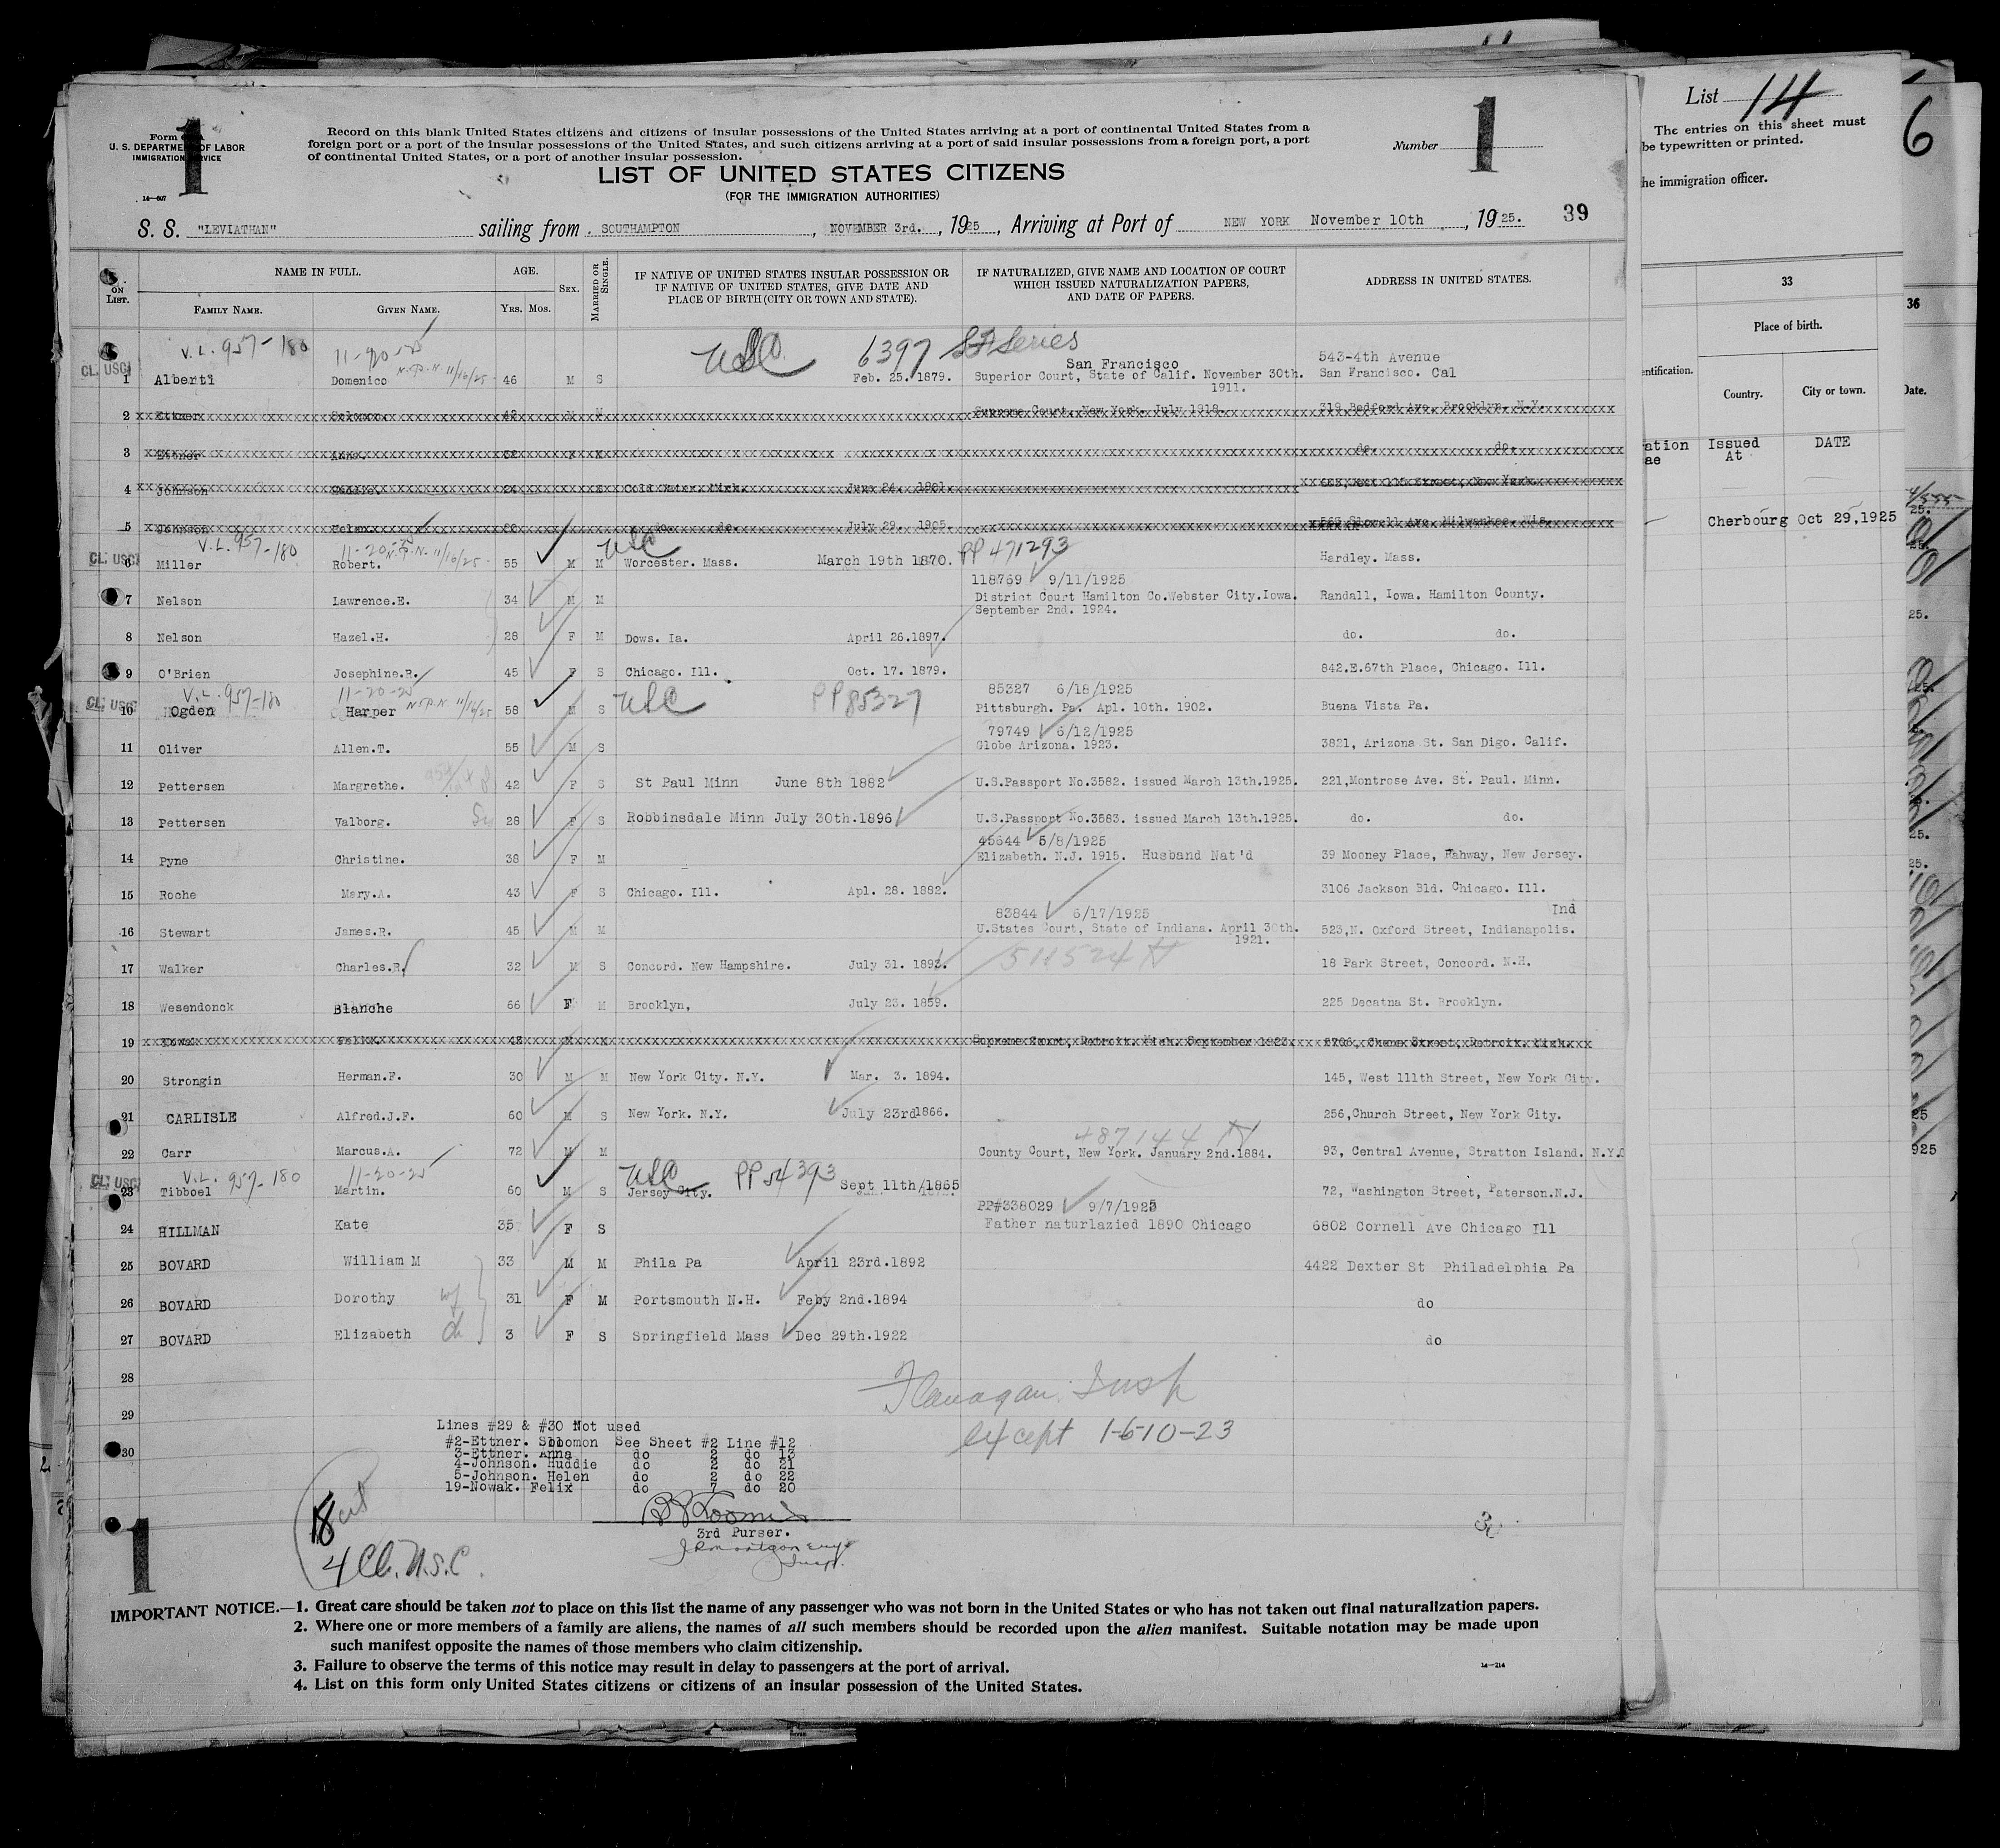 1
1
Form
U. S. DEPARTMENT OF LABOR
IMMIGRATION SERVICE
14-607
Record on this blank United States citizens and citizens of insular possessions of the United States arriving at a port of continental United States from a
foreign port or a port of the insular possessions of the United States, and such citizens arriving at a port of said insular possessions from a foreign port, a port
of continental United States, or a port of another insular possession.
Number
LIST OF UNITED STATES CITIZENS
(FOR THE IMMIGRATION AUTHORITIES)
S. S. "LEVIATHAN" sailing from SOUTHAMPTON, NOVEMBER 3rd., 1925, Arriving at Port of NEW YORK November 10th, 1925. 39
ON LIST. NAME IN FULL. AGE. SEX. MARRIED OR SINGLE. IF NATIVE OF UNITED STATES INSULAR POSSESSION OR IF NATIVE OF UNITED STATES, GIVE DATE AND PLACE OF BIRTH (CITY OR TOWN AND STATE). IF NATURALIZED, GIVE NAME AND LOCATION OF COURT WHICH ISSUED NATURALIZATION PAPERS, AND DATE OF PAPERS. ADDRESS IN UNITED STATES.
FAMILY NAME. GIVEN NAME. Yrs. Mos.
V.L. 957-180 11-20-25 USC 6397 SF Series San Francisco 543-4th Avenue
CL. USC N.P.N. 11/16/25
1 Alberti Domenico 46 M S Feb. 25. 1879. Superior Court, State of Calif. November 30th. San Francisco. Cal
1911.
2 Ettner Solomon. 42 M M Supreme Court, New York. July 1918. 319 Bedford Ave. Brooklyn. N.Y.
3 Ettner Anna. 32 F M do. do.
4 Johnson Huddie. 24 S Cold Water. Mich. June 24. 1901.
5 Johnson Helen. 20 do. do. July 29. 1905. Ave. Milwaukee. Wis.
V.L. 957-180 11-20-25 N.P.N. 11/16/25 USC PP 471293
CL. USC
6 Miller Robert. 55 M M Worcester. Mass. March 19th 1870. Hardley. Mass.
118769 9/11/1925
7 Nelson Lawrence.E. 34 M M District Court Hamilton Co.Webster City.Iowa. Randall, Iowa. Hamilton County.
September 2nd. 1924.
8 Nelson Hazel.H. 28 F M Dows. Ia. April 26.1897. do. do.
9 O'Brien Josephine.R. 45 F S Chicago. Ill. Oct. 17. 1879. 842.E.67th Place, Chicago. Ill.
V.L. 957-180 11-20-25 N.P.N 11/16/25 USC PP85327 85327 6/18/1925
CL. USC
10 Ogden Harper 58 M S Pittsburgh. Pa. Apl. 10th. 1902. Buena Vista Pa.
79749 6/12/1925
11 Oliver Allen.T. 55 M S Globe Arizona. 1923. 3821, Arizona St. San Digo. Calif.
12 Pettersen Margrethe. 42 F S St Paul Minn June 8th 1882 U.S.Passport No.3582. issued March 13th.1925. 221,Montrose Ave. St. Paul. Minn.
13 Pettersen Valborg. 28 F S Robbinsdale Minn July 30th.1896 U.S.Passport No.3583. issued March 13th.1925. do. do.
45644 5/8/1925
14 Pyne Christine. 38 F M Elizabeth. N.J. 1915. Husband Nat'd 39 Mooney Place, Rahway, New Jersey.
15 Roche Mary.A. 43 F S Chicago. Ill. Apl. 28. 1882. 3106 Jackson Bld. Chicago. Ill.
83844 6/17/1925 Ind
16 Stewart James.R. 45 M M U.States Court, State of Indiana. April 30th. 523,N. Oxford Street, Indianapolis.
1921.
17 Walker Charles.R. 32 M S Concord. New Hampshire. July 31. 1893. 511524 18 Park Street, Concord. N.H.
18 Wesendonck Blanche 66 F M Brooklyn, July 23. 1859. 225 Decatna St. Brooklyn.
19 Nowak Felix. 42 M M Supreme Court, Detroit. Mich. September 1923. Chene Street, Detroit. Mich.
20 Strongin Herman.F. 30 M M New York City. N.Y. Mar. 3. 1894. 145, West 111th Street, New York City.
21 CARLISLE Alfred.J.F. 60 M S New York. N.Y. July 23rd1866. 256,Church Street, New York City.
487144
22 Carr Marcus.A. 72 M M County Court, New York. January 2nd.1884. 93, Central Avenue, Stratton Island. N.Y.
V.L. 957-180 11-20-25 USC PP 54393 Sept 11th/1865
CL. USC
23 Tibboel Martin. 60 M S Jersey City. 72, Washington Street, Paterson.N.J.
PP#338029 9/7/1925
24 HILLMAN Kate 35 F S Father naturlazied 1890 Chicago 6802 Cornell Ave Chicago Ill
25 BOVARD William M 33 M M Phila Pa April 23rd.1892 4422 Dexter St Philadelphia Pa
26 BOVARD Dorothy wf 31 F M Portsmouth N.H. Feby 2nd.1894 do
27 BOVARD Elizabeth ch 3 F S Springfield Mass Dec 29th.1922 do
28
Flanagan Insp
29
except 1-6-10-23
30
Lines #29 & #30 Not used
#2-Ettner. Solomon See Sheet #2 Line #12
3-Ettner. Anna do 2 do 13
4-Johnson. Huddie do 2 do 21
5-Johnson. Helen do 2 do 22
19-Nowak. Felix do 7 do 20
3rd Purser.
Insp.
4 Cl. U.S.C.
1
IMPORTANT NOTICE.—1. Great care should be taken not to place on this list the name of any passenger who was not born in the United States or who has not taken out final naturalization papers.
2. Where one or more members of a family are aliens, the names of all such members should be recorded upon the alien manifest. Suitable notation may be made upon
such manifest opposite the names of those members who claim citizenship.
3. Failure to observe the terms of this notice may result in delay to passengers at the port of arrival.
4. List on this form only United States citizens or citizens of an insular possession of the United States.
14-214
List 14
The entries on this sheet must
be typewritten or printed.
he immigration officer.
33
Place of birth.
entification.
Country. City or town.
ration Issued At DATE
ae
Cherbourg Oct 29,1925
6
36
Date.
25.
25.
25.
25
925